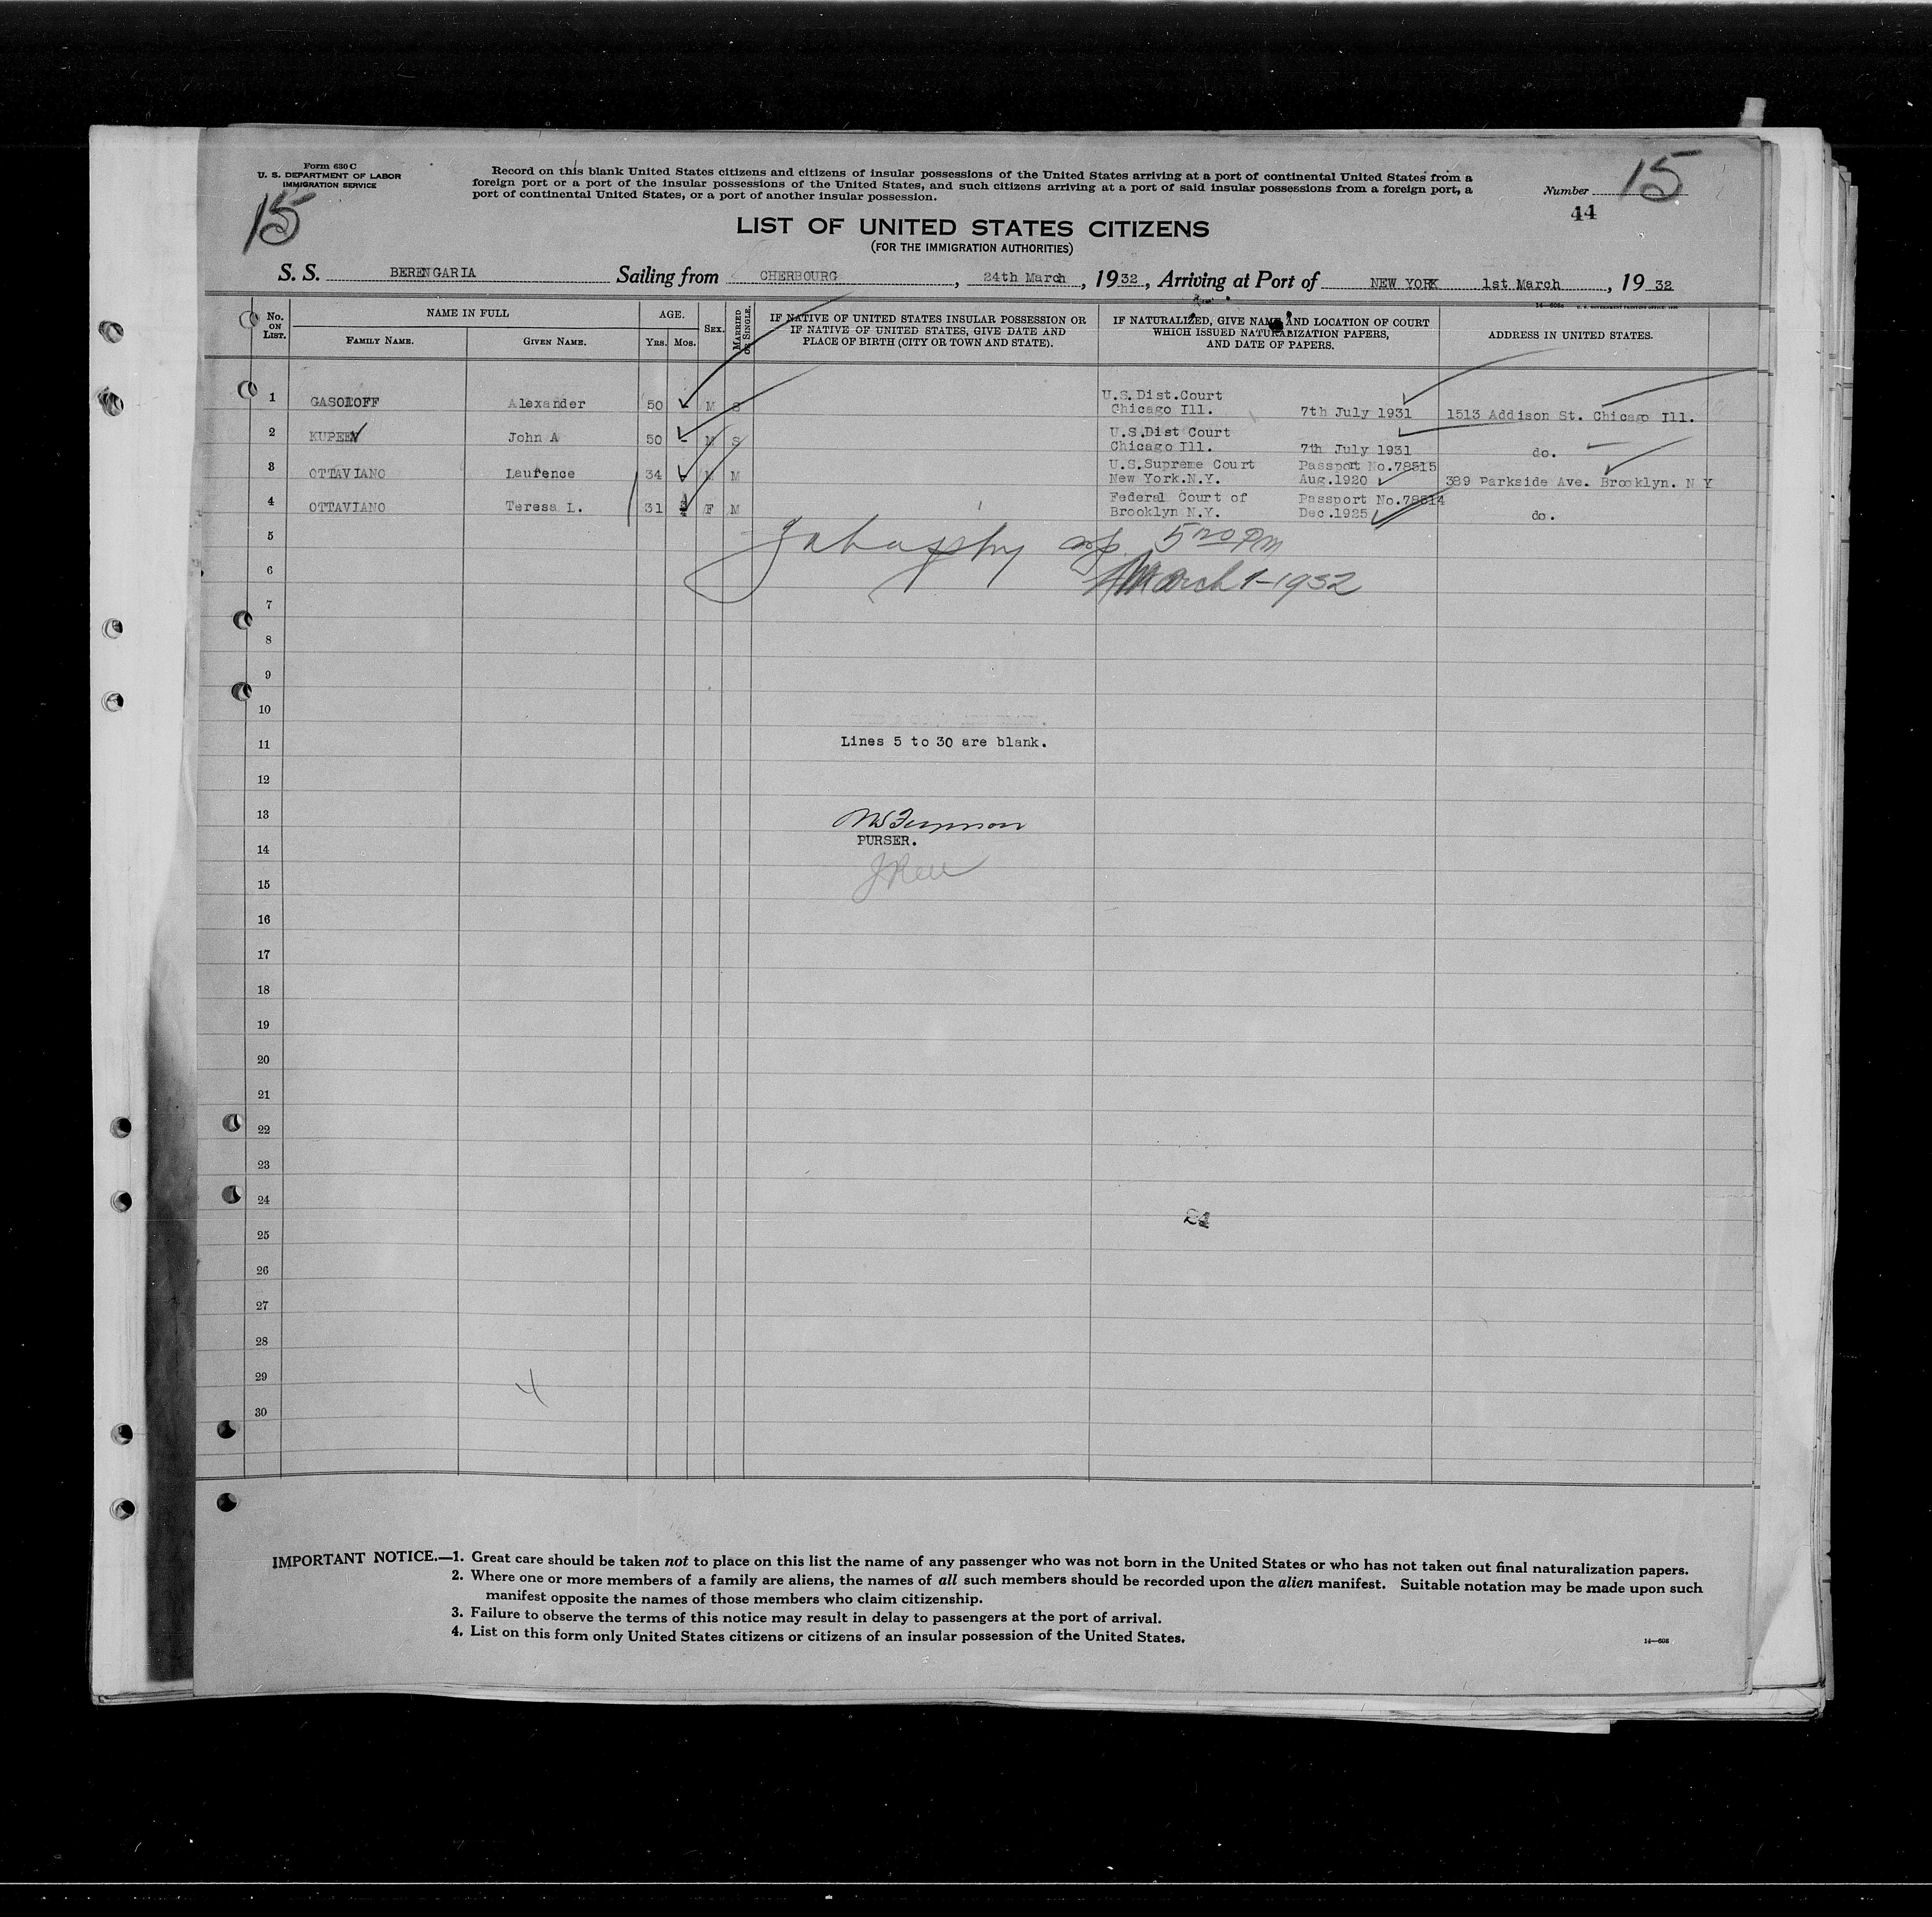 Form 630 C
U. S. DEPARTMENT OF LABOR
IMMIGRATION SERVICE
15
Record on this blank United States citizens and citizens of insular possessions of the United States arriving at a port of continental United States from a
foreign port or a port of the insular possessions of the United States, and such citizens arriving at a port of said insular possessions from a foreign port, a
port of continental United States, or a port of another insular possession.
Number 15
44
LIST OF UNITED STATES CITIZENS
(FOR THE IMMIGRATION AUTHORITIES)
S. S. BERENGARIA Sailing from CHERBOURG, 24th March, 1932, Arriving at Port of NEW YORK 1st March, 1932
No. ON LIST. NAME IN FULL AGE. SEX. MARRIED OR SINGLE. IF NATIVE OF UNITED STATES INSULAR POSSESSION OR IF NATIVE OF UNITED STATES, GIVE DATE AND PLACE OF BIRTH (CITY OR TOWN AND STATE). IF NATURALIZED, GIVE NAME AND LOCATION OF COURT WHICH ISSUED NATURALIZATION PAPERS, AND DATE OF PAPERS. ADDRESS IN UNITED STATES.
FAMILY NAME. GIVEN NAME. YRS. MOS.
1 GASOLOFF Alexander 50 M S U.S.Dist.Court Chicago Ill. 7th July 1931 1513 Addison St. Chicago Ill.
2 KUPEEV John A 50 - M S U.S.Dist Court Chicago Ill. 7th July 1931 do.
3 OTTAVIANO Laurence 34 M M U.S.Supreme Court New York.N.Y. Passport No.78515 Aug.1920 389 Parkside Ave. Brooklyn. N Y
4 OTTAVIANO Teresa L. 31 F M Federal Court of Brooklyn N.Y. Passport No.78514 Dec.1925 do.
5
5 PM
6
March 1-1932
7
8
9
10
11 Lines 5 to 30 are blank.
12
13
PURSER.
14
15
16
17
18
19
20
21
22
23
24
25
26
27
28
29
30
IMPORTANT NOTICE.—1. Great care should be taken not to place on this list the name of any passenger who was not born in the United States or who has not taken out final naturalization papers.
2. Where one or more members of a family are aliens, the names of all such members should be recorded upon the alien manifest. Suitable notation may be made upon such
manifest opposite the names of those members who claim citizenship.
3. Failure to observe the terms of this notice may result in delay to passengers at the port of arrival.
4. List on this form only United States citizens or citizens of an insular possession of the United States.
14—608